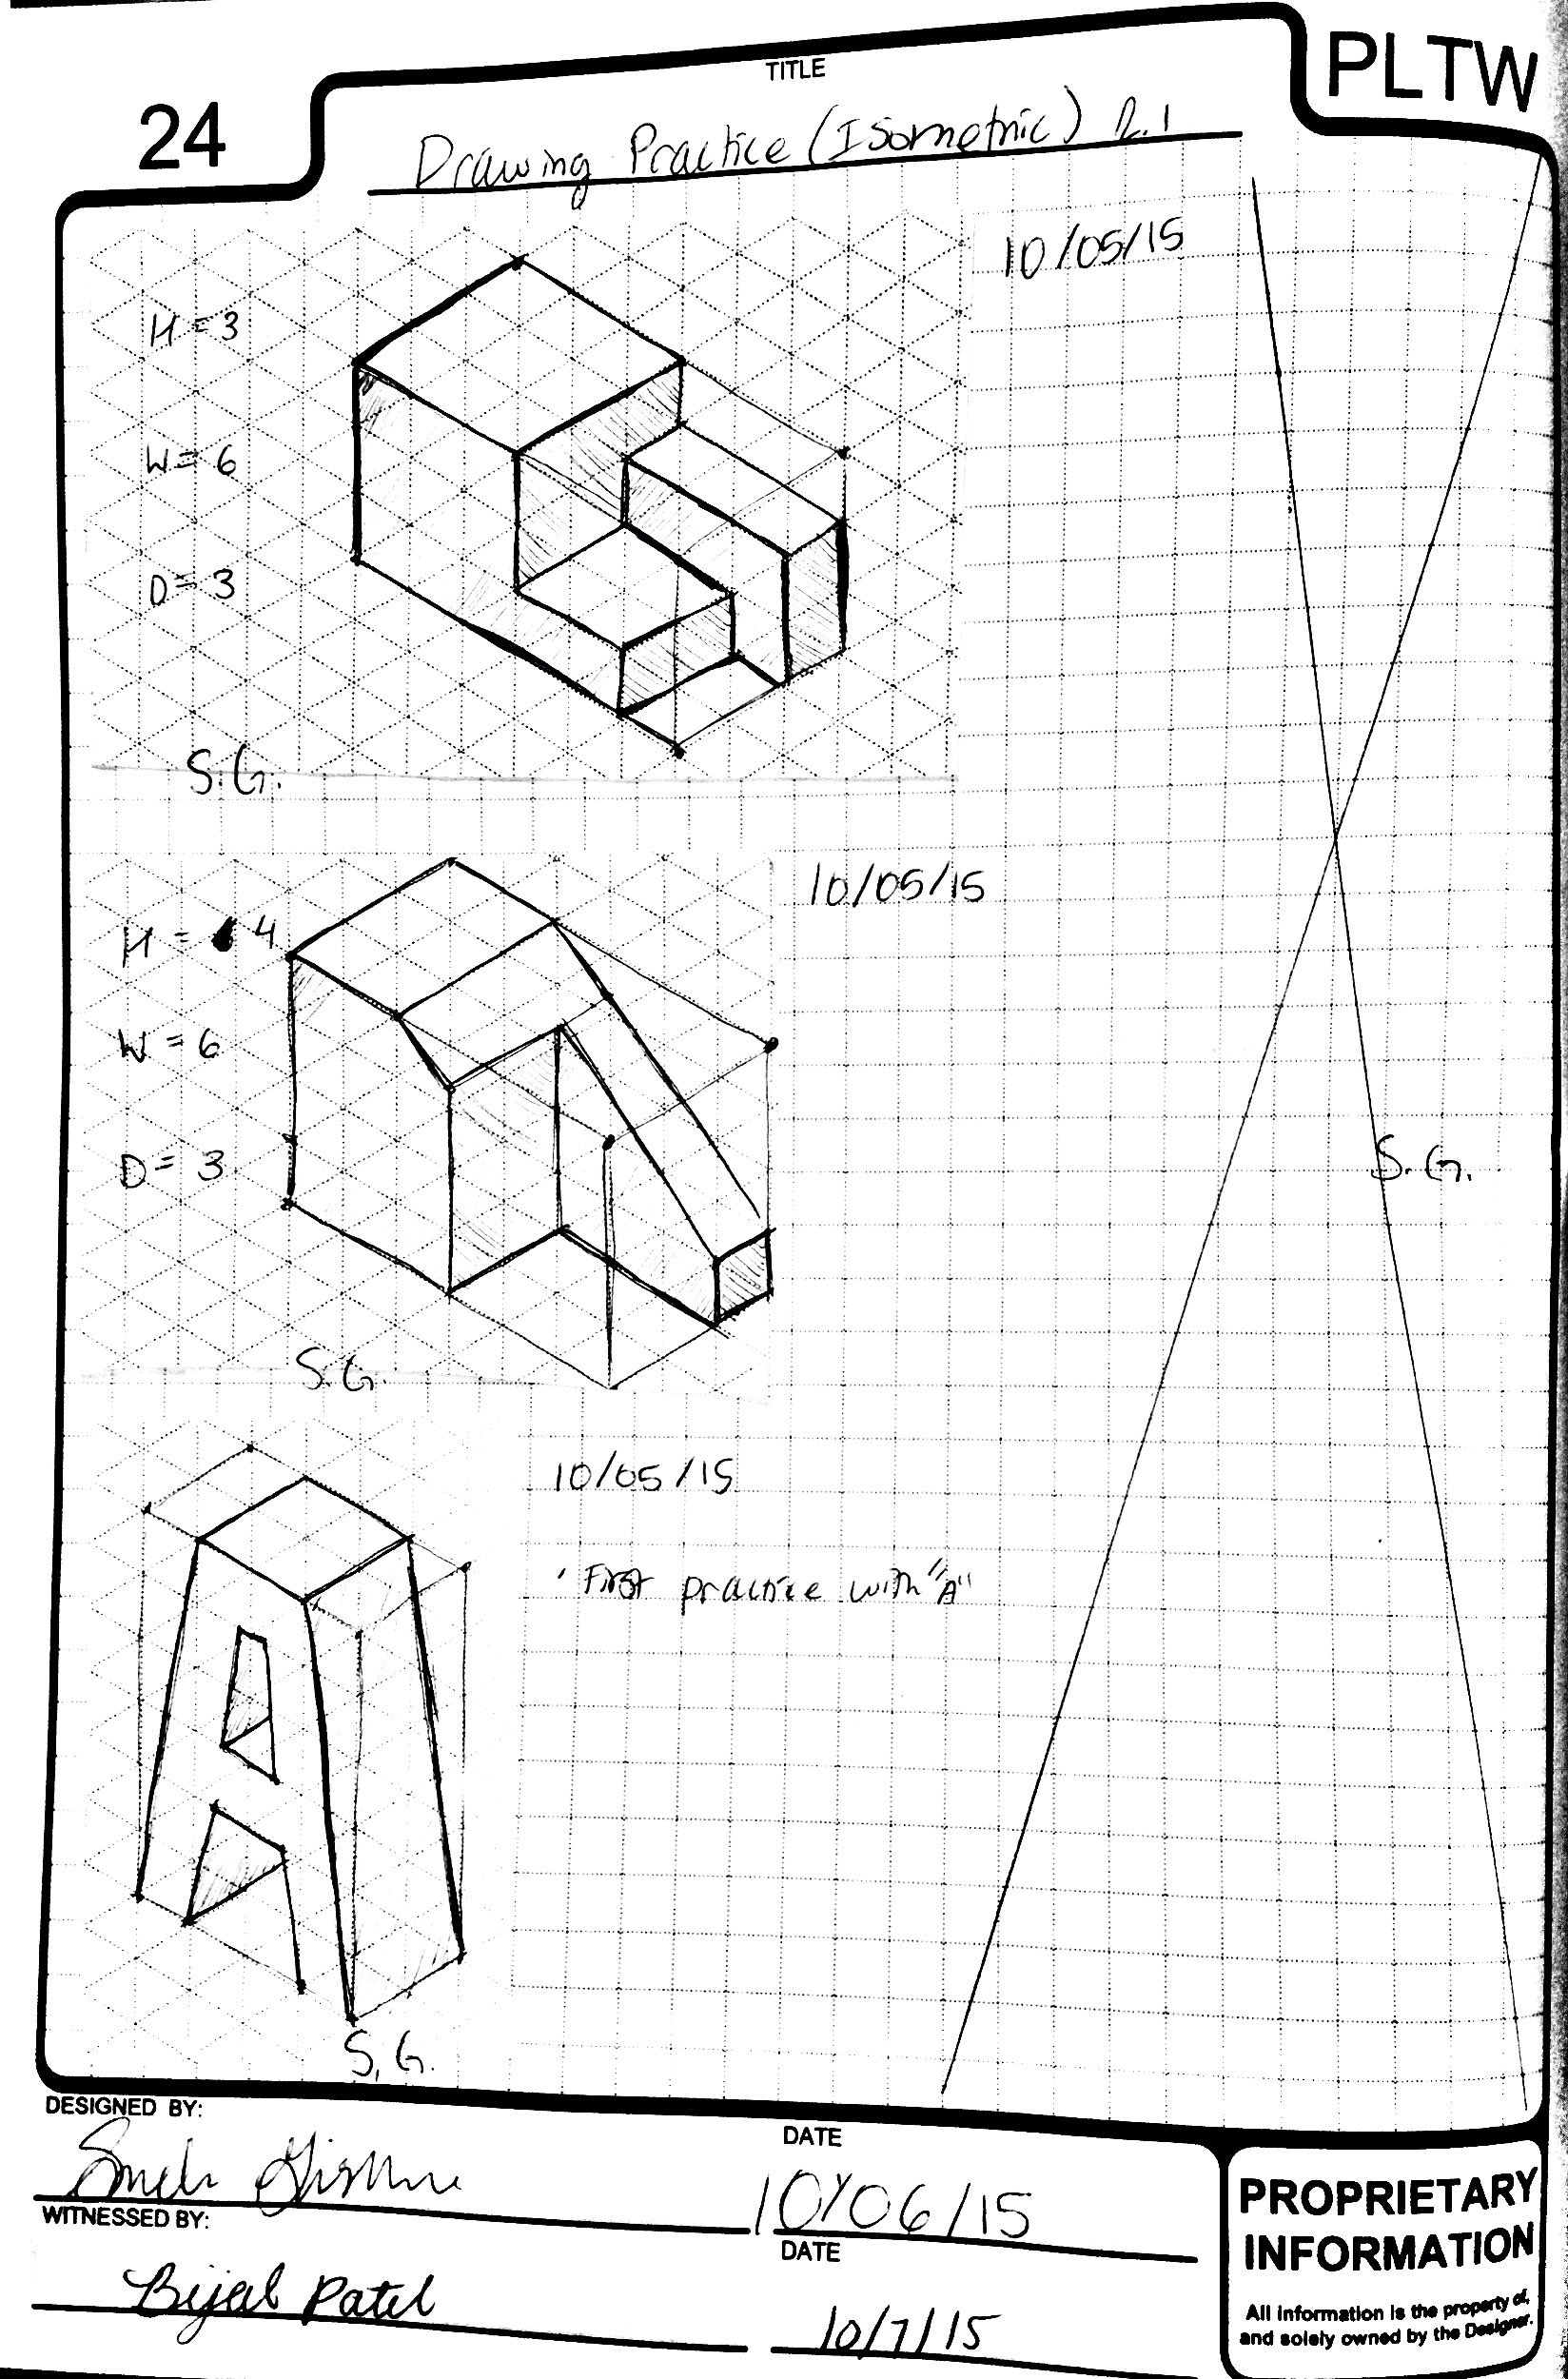 24
TITLE
PLTW
Drawing Practice (Isometric)
10/05/15
H = 3
W = 6
D = 3
S.G.
10/05/15
H = 4
W = 6
D = 3
S.G.
S.G.
10/05/15
' First practice with "A"
S.G.
DESIGNED BY:
DATE
10/06/15
WITNESSED BY:
DATE
Bijal Patel
10/7/15
PROPRIETARY
INFORMATION
All information is the property of,
and solely owned by the Designer.